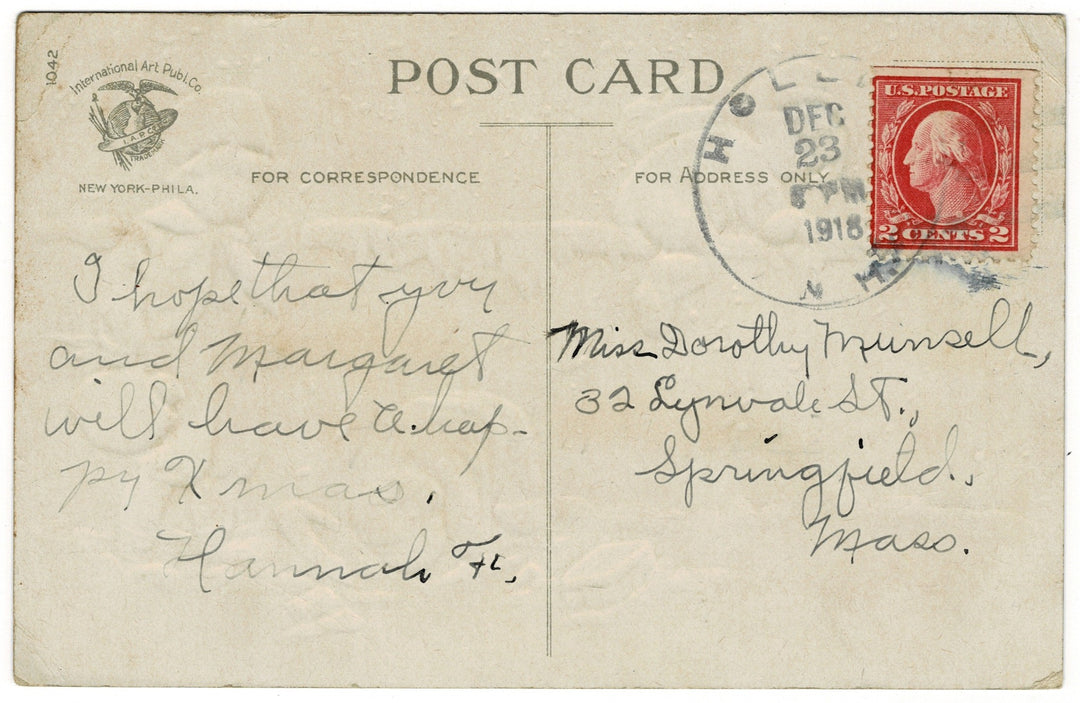 1042
International Art Publ. Co.
I.A.P.Co.
TRADEMARK
NEW YORK-PHILA.
POST CARD
DEC
23
1918
N H.
U.S. POSTAGE
2 CENTS 2
FOR CORRESPONDENCE
FOR ADDRESS ONLY
I hope that you
and Margaret
will have a hap-
py Xmas.
Hannah F.
Miss Dorothy Munsell,
32 Lynvale St.,
Springfield,
Mass.